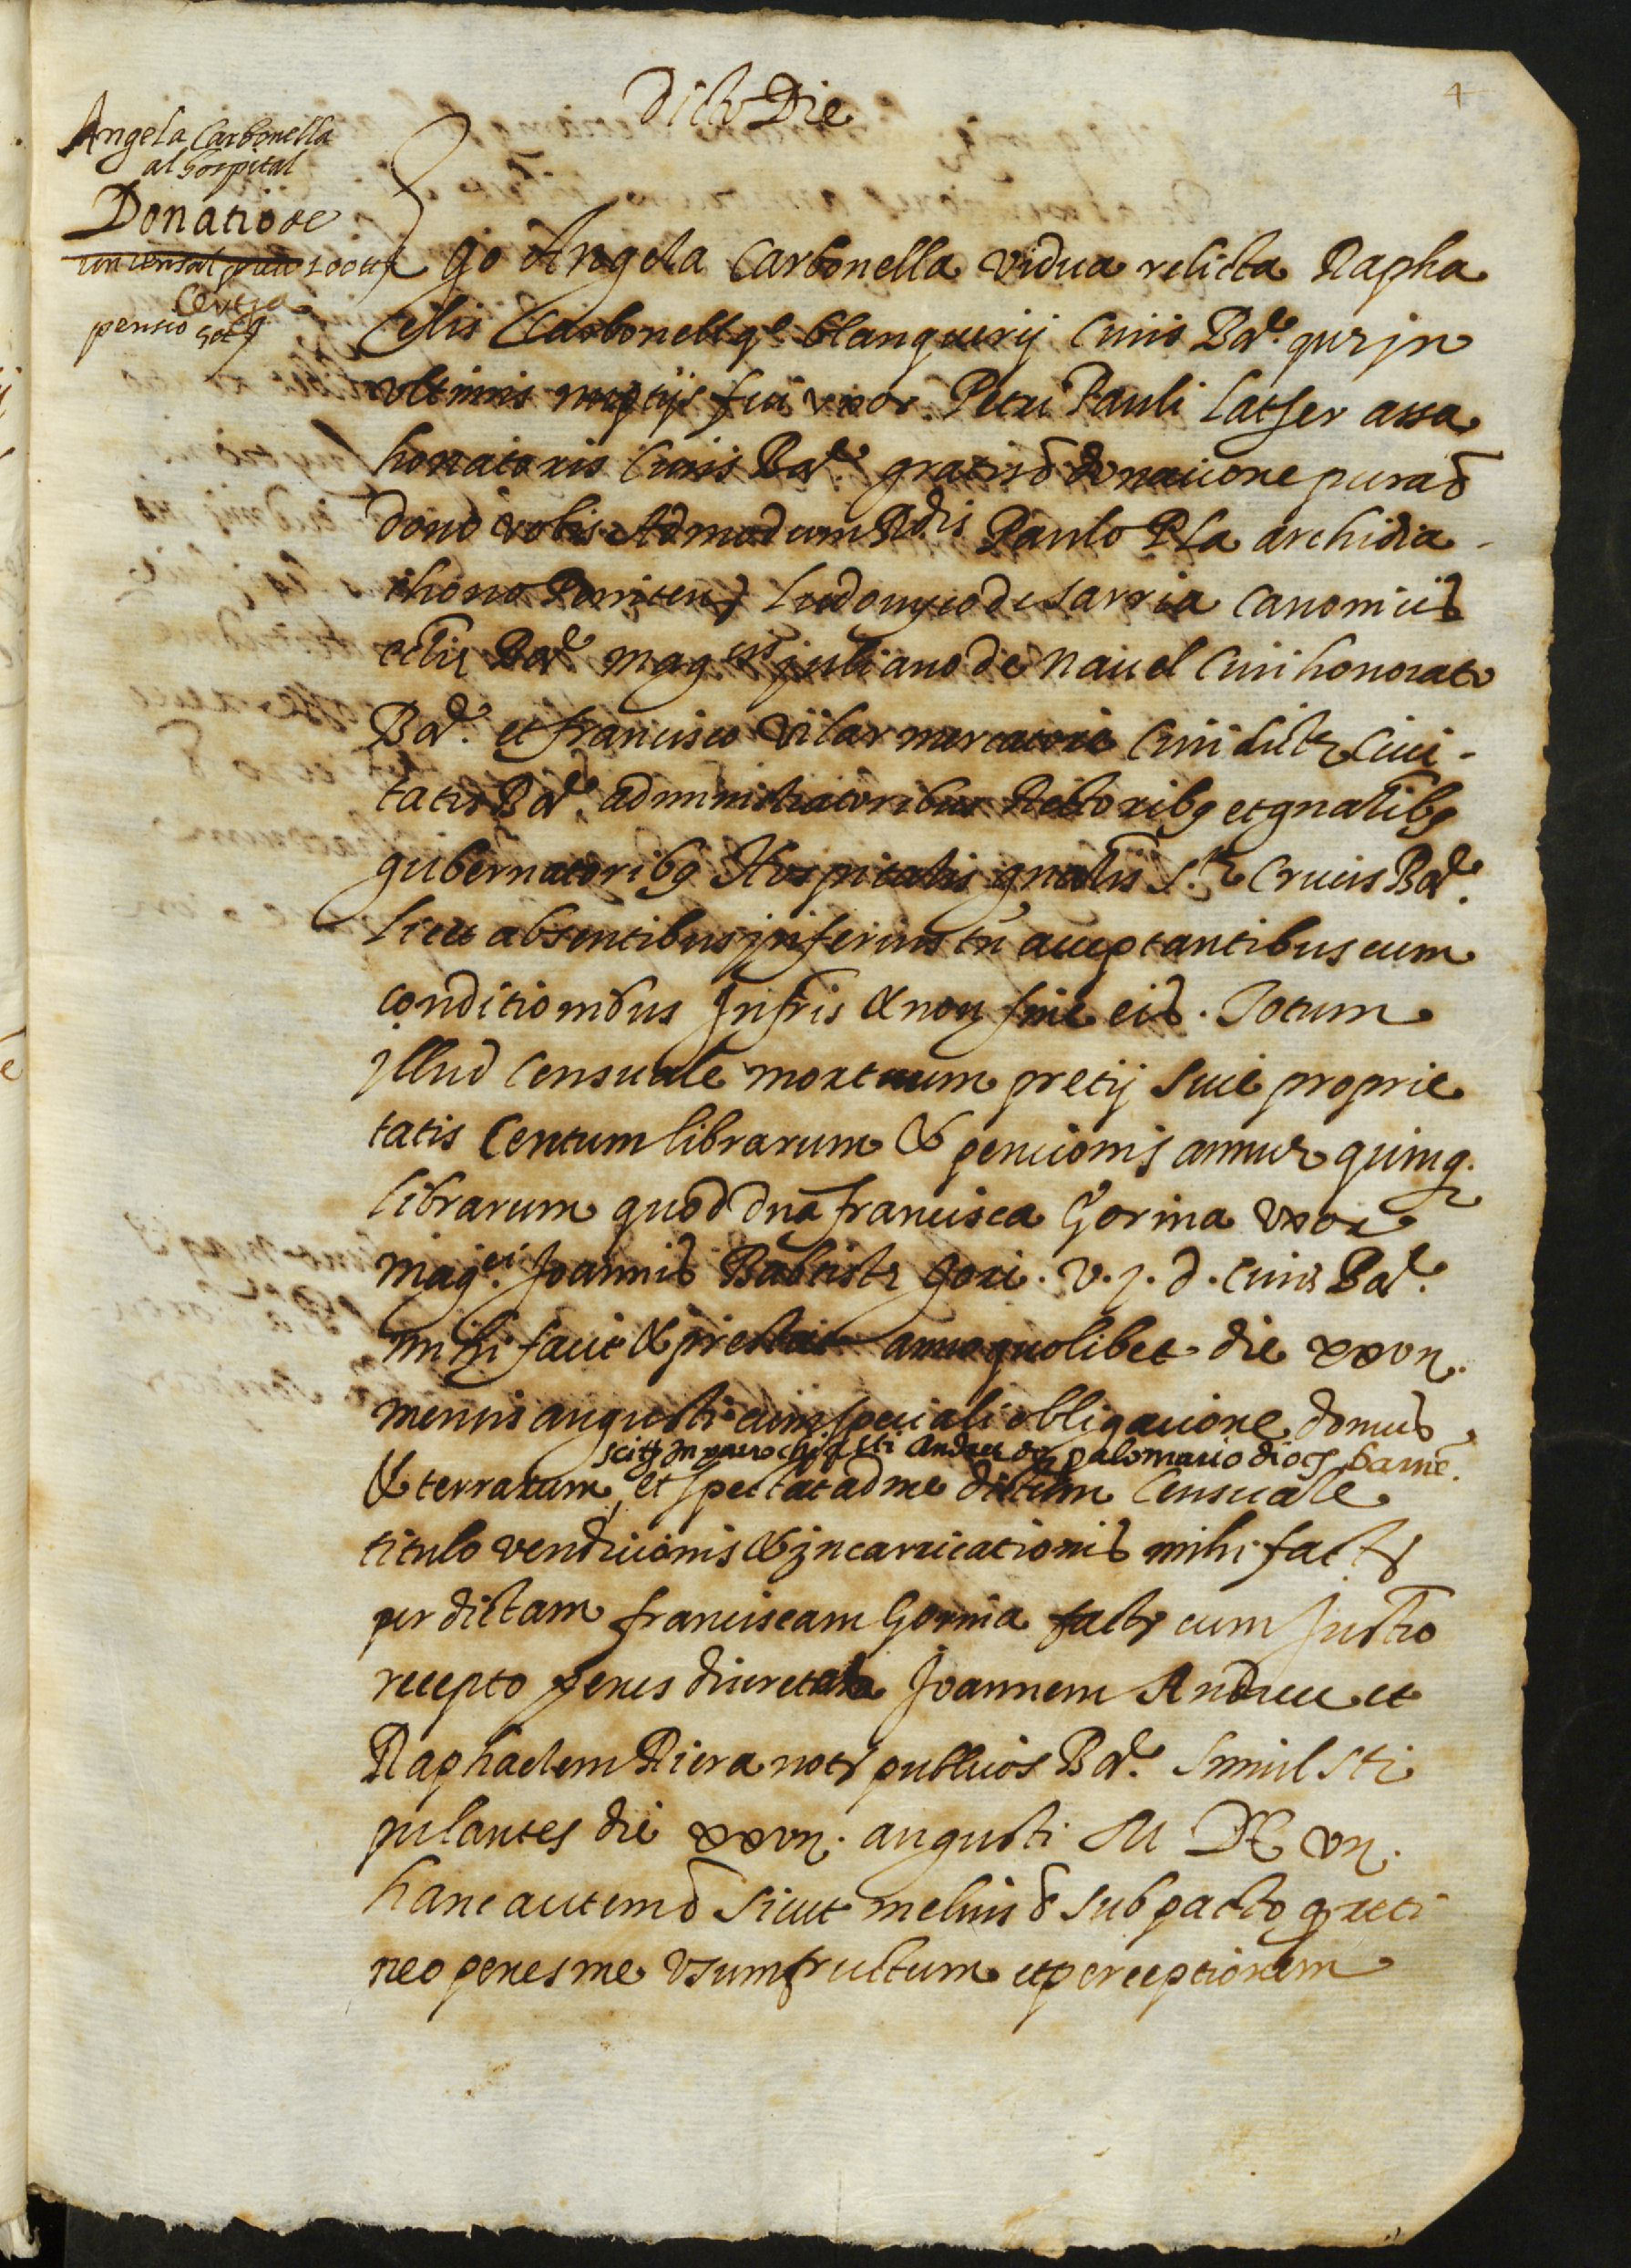 4
Dicto Die
Angela Carbonella
al hospital
Donatio de
un censal preu 100 ll
pensio 5 ll
Ego Angela Carbonella vidua relicta Rapha
elis Carbonell qº blanquerij Civis Bar. que in
ultimis nuptijs fui uxor Petri Pauli Latser assa
honatoris Civis Bar. gratis donacione pura
dono vobis Admodum Rdis Paulo Pla archidia-
chono Ludovico de Sarria canonicis
Bar. magcis juliano de Navel Civi honorato
Bar. et francisco Vilar mercatori Civi dicte Civi-
tatis Bar. administratoribus Rectoribq et gnalibq
gubernatoribq Hospitalis gnalis Ste Crucis Bar.
licet absentibus inferius tn acceptantibus cum
conditionibus infris & non sine eis. Totum
illud Censuale mortuum pretij sive proprie
tatis Centum librarum & pencionis annue quinq.
librarum quod dna francisca Gorina uxor
magci. Joannis Babtiste Gori. v. j. d. civis Bar.
mihi facit & prestat anno quolibet die xxvij.
mensis augusti cum speciali obligacione domus
scite in parrochia sti Andree de palomario dioc Barne.
& terrarum et spectat ad me dictum Censuale
titulo vendicionis & incarricationis mihi facte
per dictam franciscam Gorina facte cum Justro
recepto penes discretos Joannem Andreu et
Raphaelem Riera nots publicos Bar. simul sti
pulantes die xxvij. augusti M D vij.
hanc autem sicut melius sub pacto q reti
neo penes me usumfructum et perceptionem